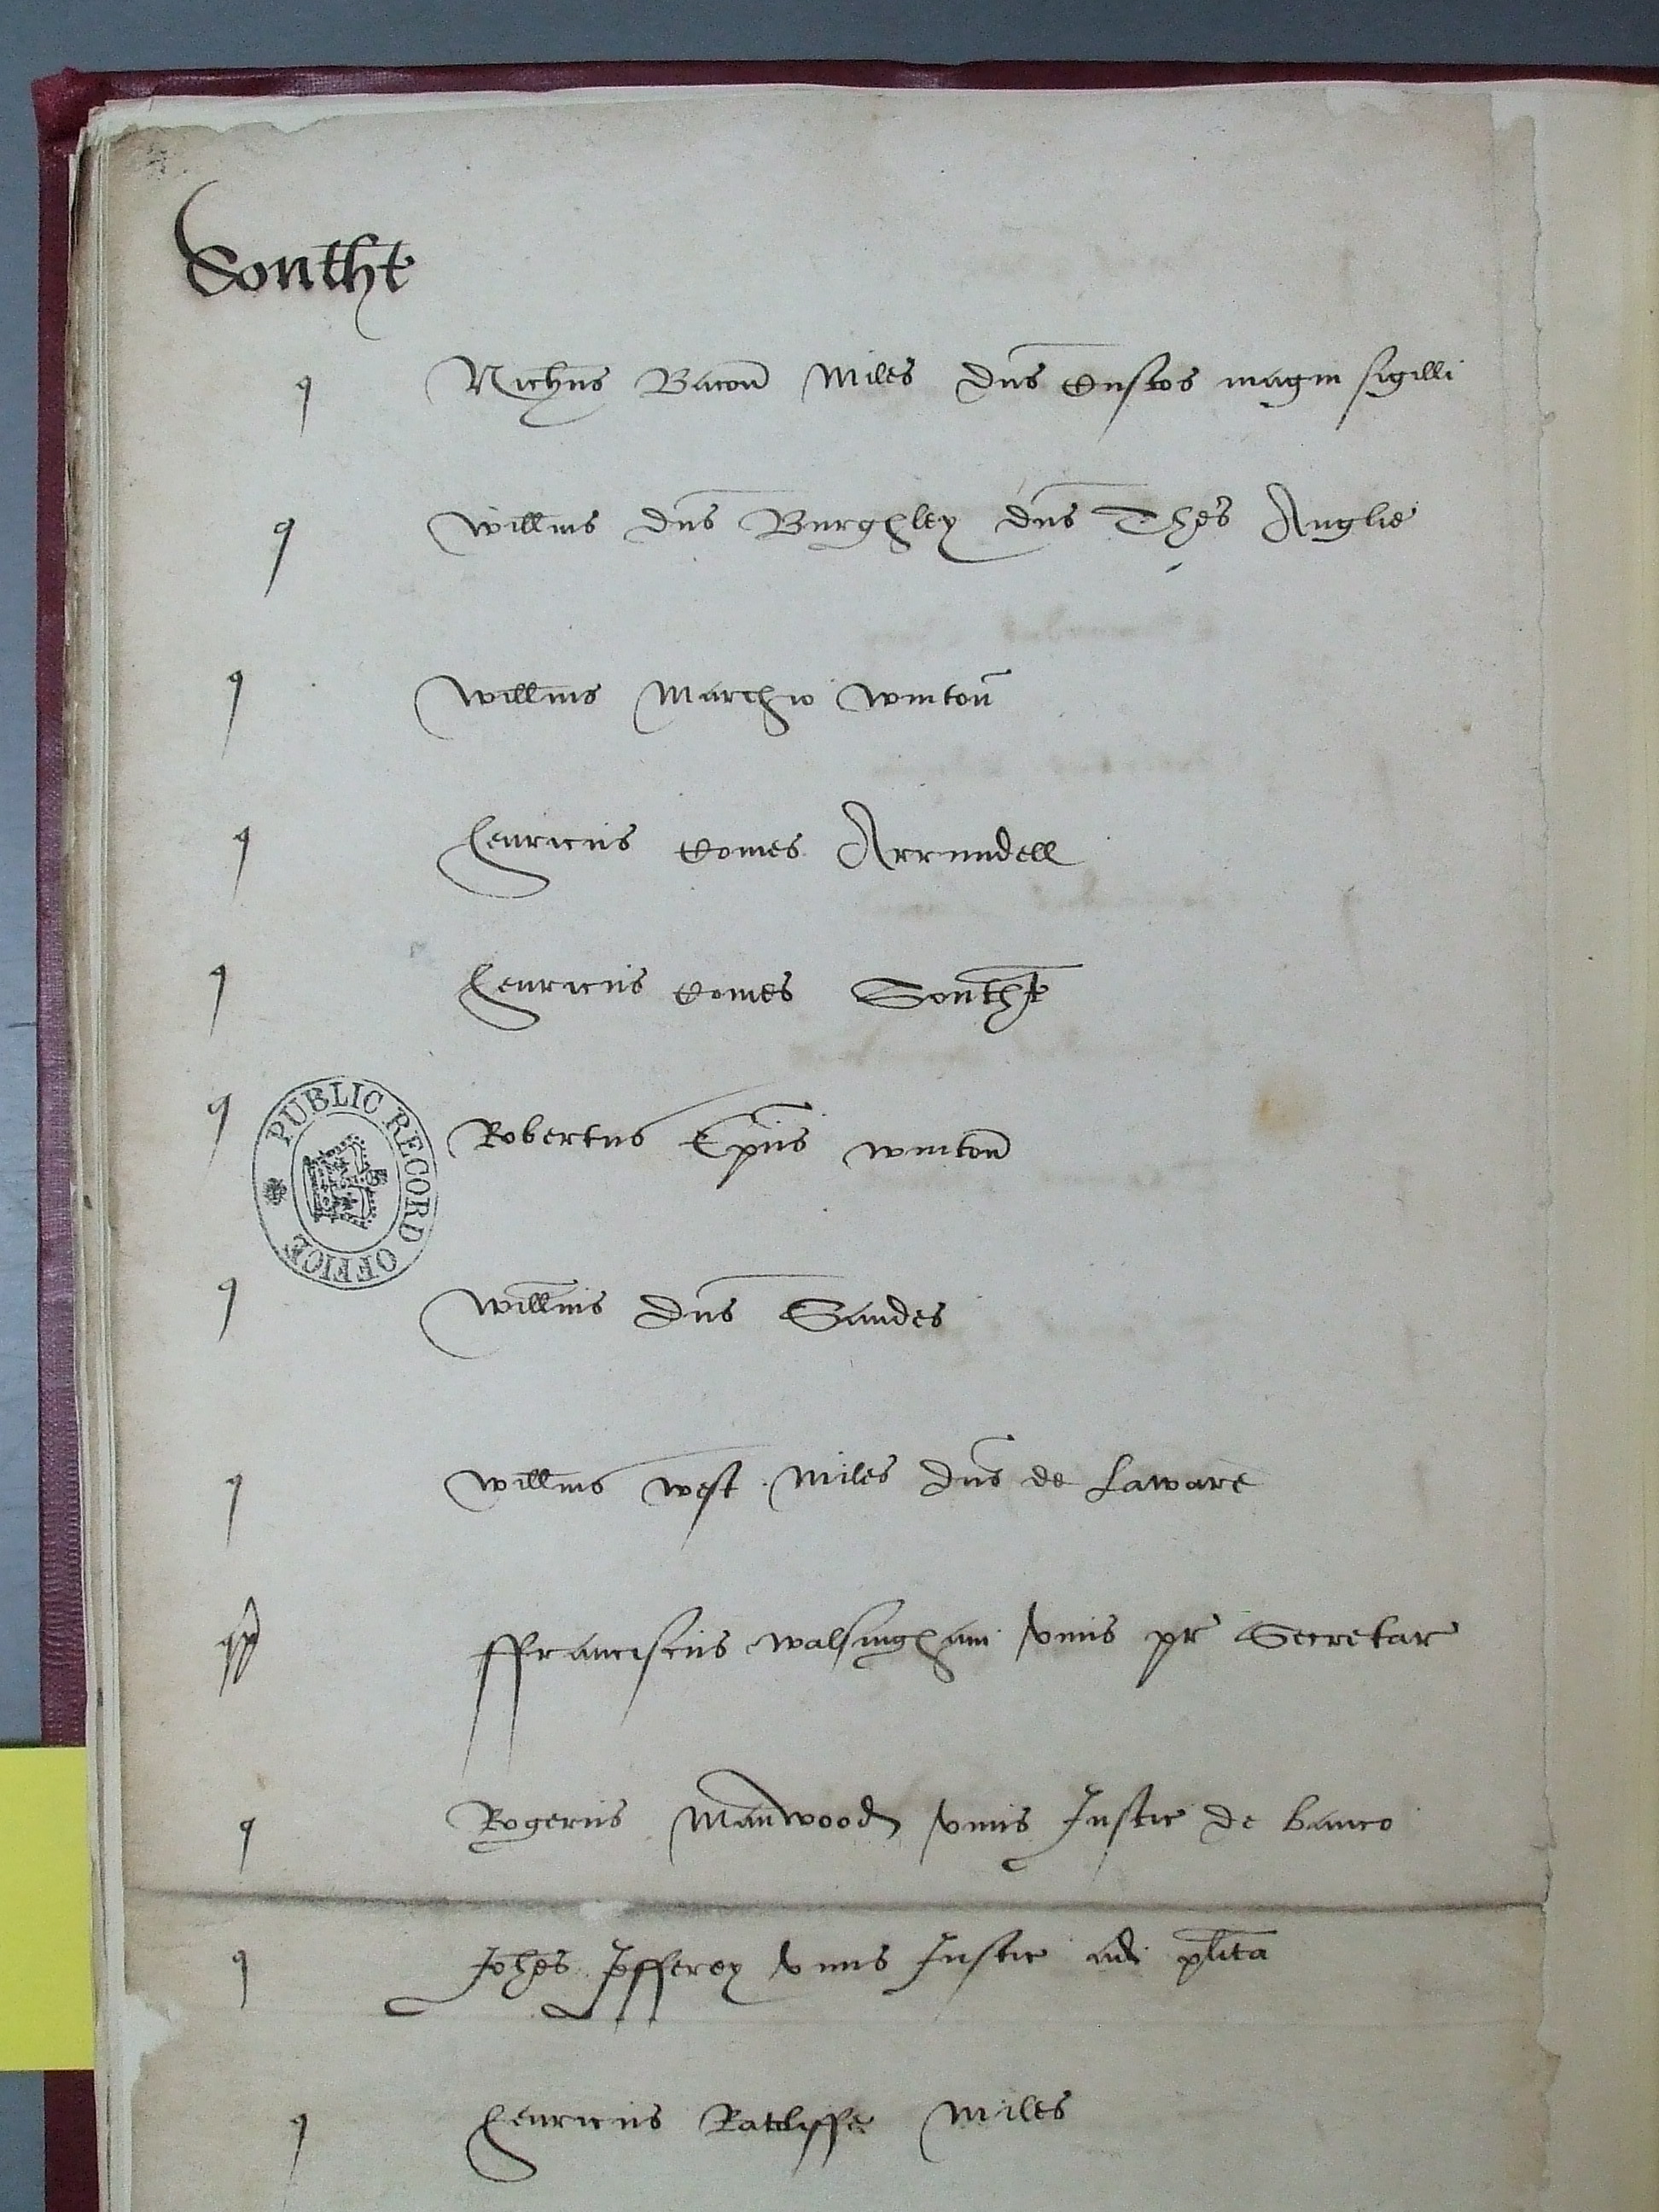 Southt
q Nichus Bacon Miles dns Custos magni sigilli
q Willms dns Burghley dns Thes Anglie
q Willms Marchio Winton
q Henricus Comes Arrundell
q Henricus Comes Southt
q Robertus Epus Winton
PUBLIC RECORD OFFICE
q Willms dns Sandes
q Willms West Miles dns de Laware
ffranciscus Walsingham vnus pr Secretar
q Rogerus Manwood vnus Justic de banco
q Johes Jefferey vnus Justic ad plita
q Henricus Ratcliffe Miles